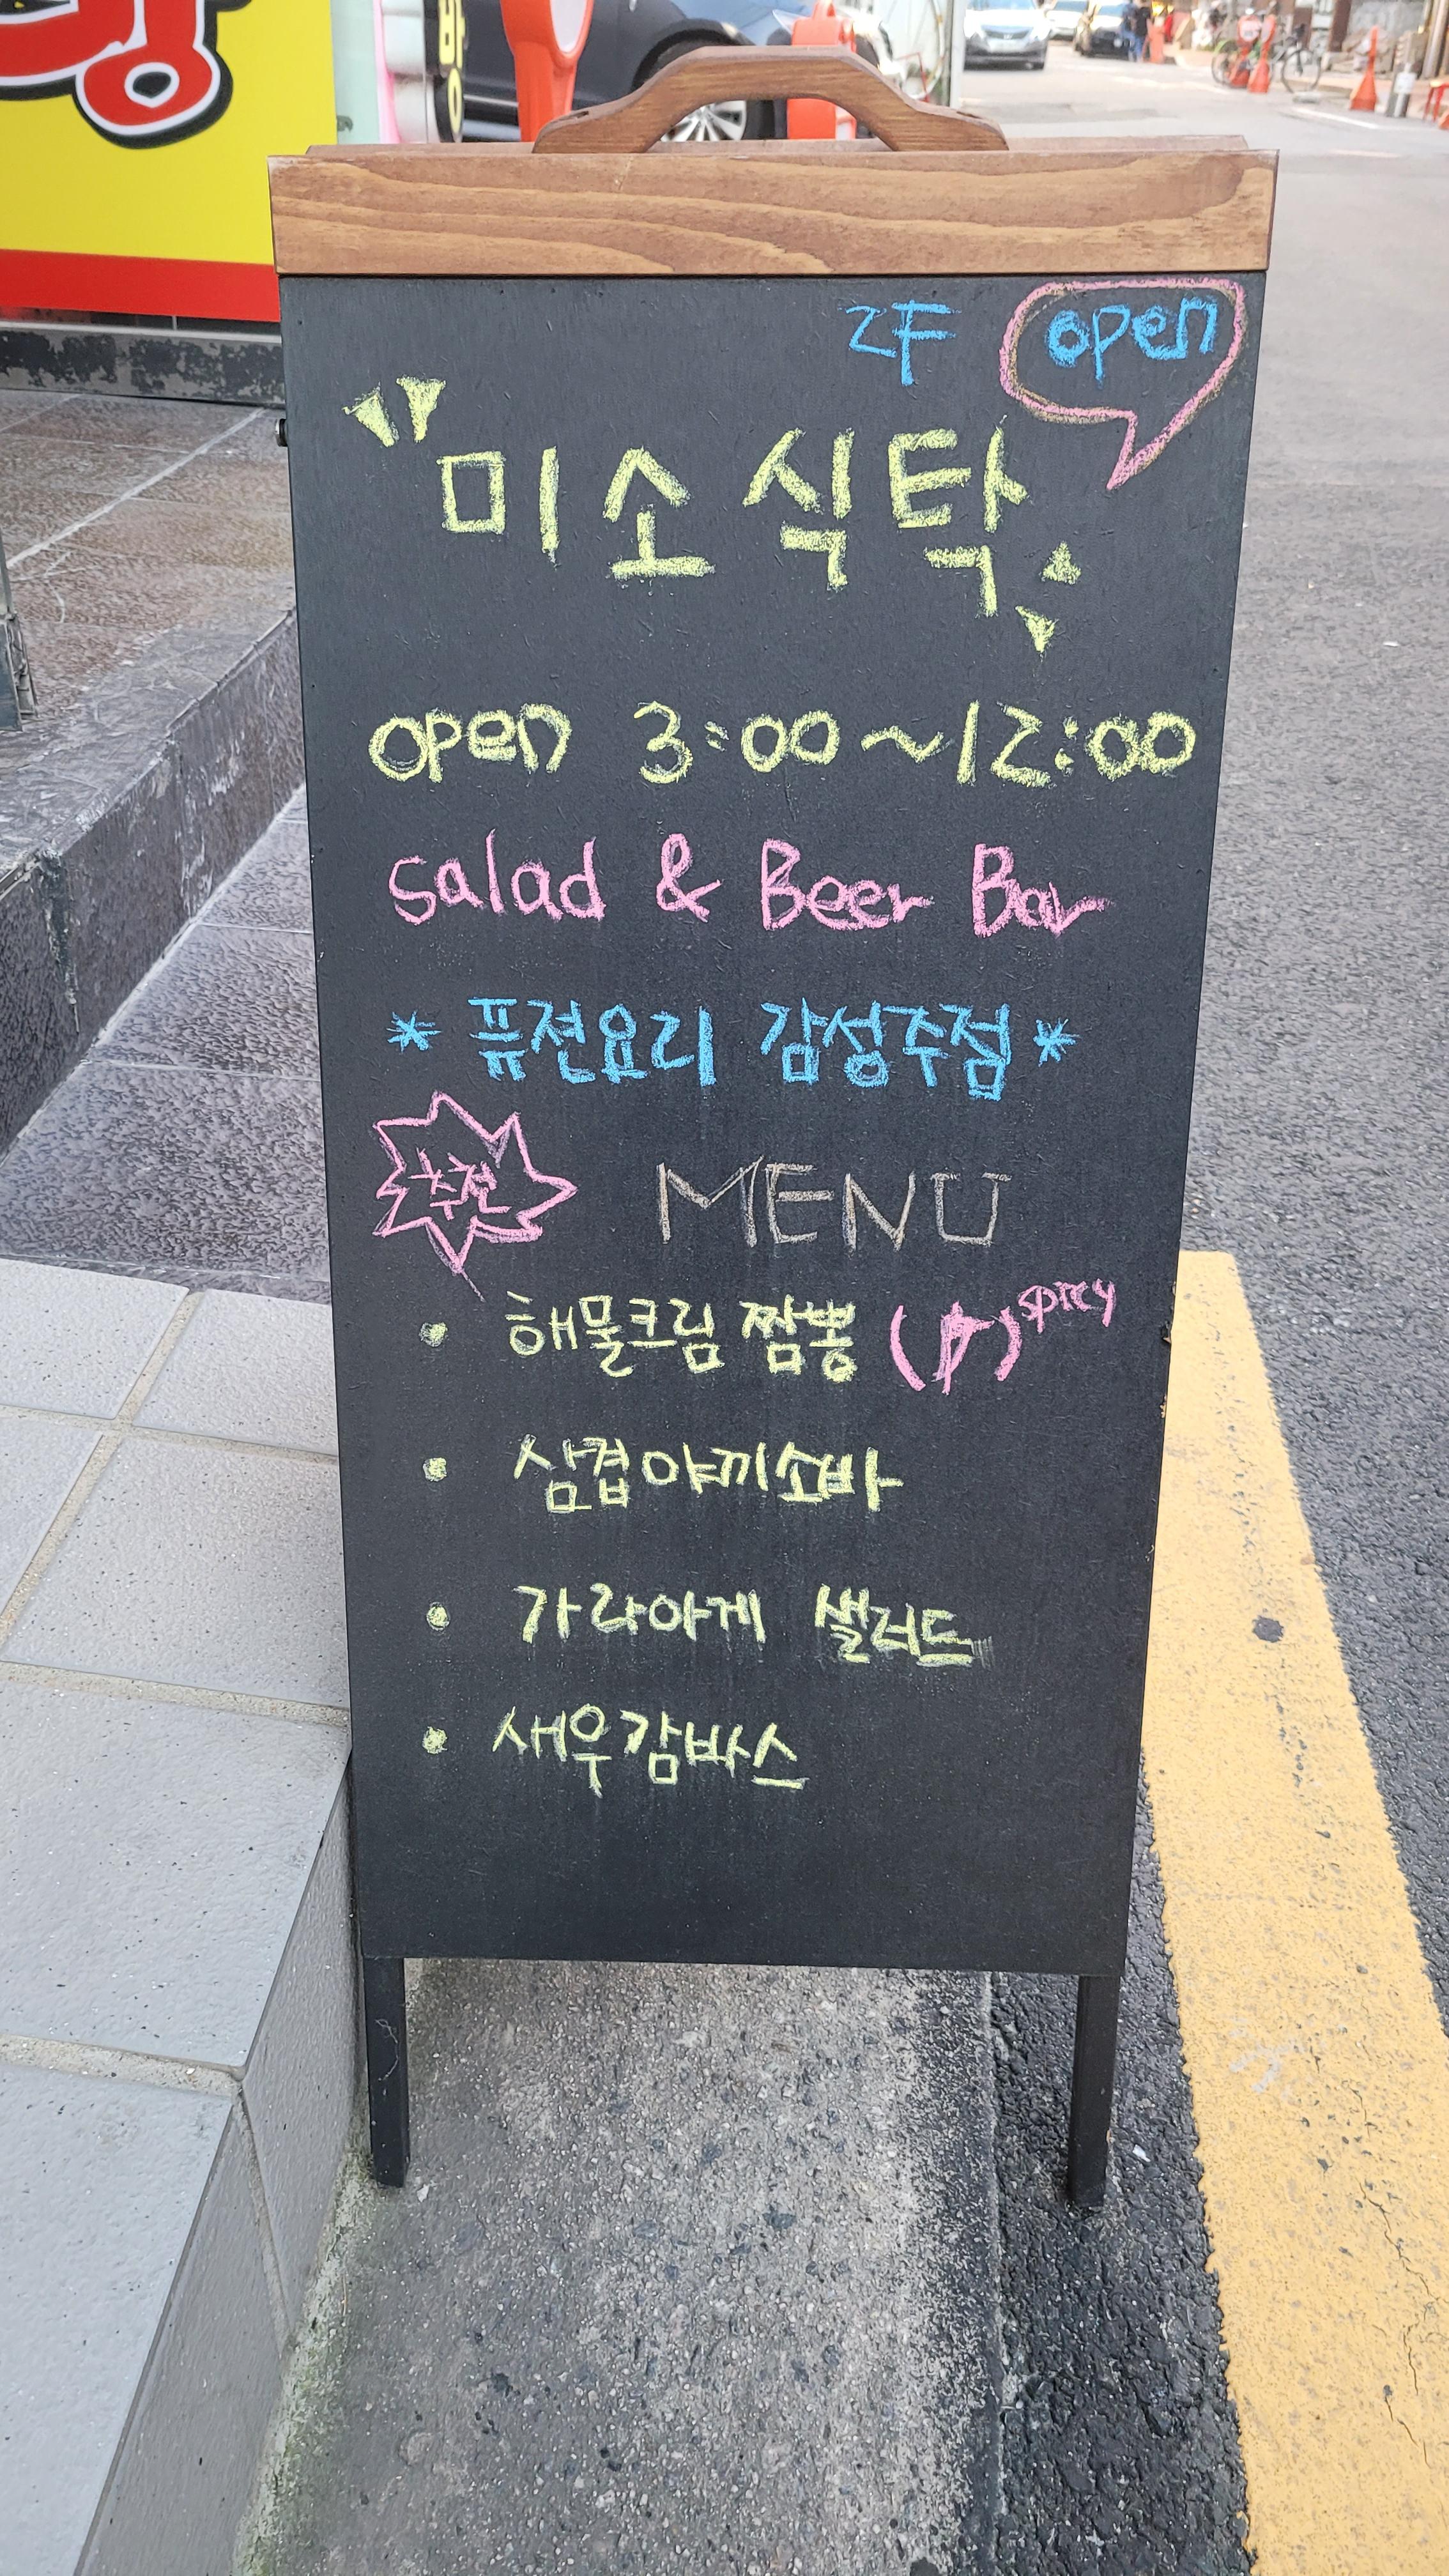 방
2F open
미소식탁
open 3:00~12:00
Salad & Beer Bar
* 퓨젼요리 감성주점 *
추천 MENU
• 해물크림 짬뽕 ( ) spicy
• 삼겹야끼소바
• 가라아게 샐러드
• 새우감바스